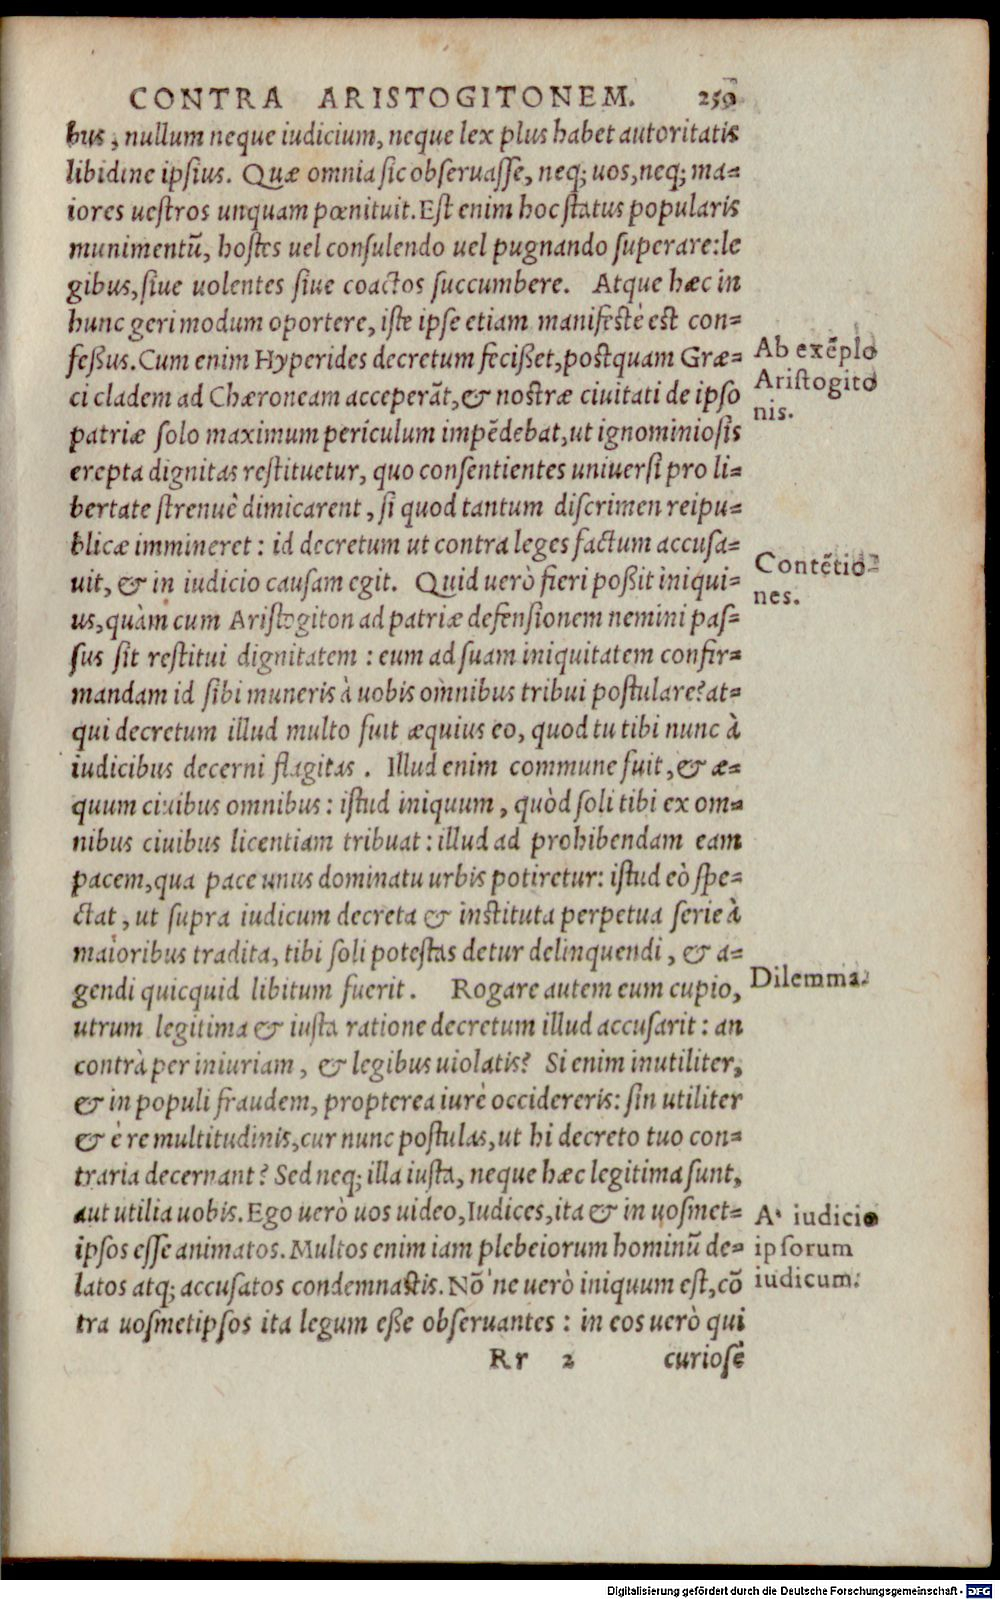 CONTRA ARISTOGITONEM. 259
bus, nullum neque iudicium, neque lex plus habet autoritatis
libidine ipsius. Quæ omnia sic obseruasse, neq; uos, neq; ma=
iores uestros unquam pœnituit. Est enim hoc status popularis
munimentū, hostes uel consulendo uel pugnando superare: le
gibus, siue uolentes siue coactos succumbere. Atque hæc in
hunc geri modum oportere, iste ipse etiam manifestè est con=
feßus. Cum enim Hyperides decretum fecißet, postquam Græ=
ci cladem ad Chæroneam acceperāt, & nostræ ciuitati de ipso
patriæ solo maximum periculum impēdebat, ut ignominiosis
erepta dignitas restituetur, quo consentientes uniuersi pro li=
bertate strenuè dimicarent, si quod tantum discrimen reipu=
blicæ immineret: id decretum ut contra leges factum accusa=
uit, & in iudicio causam egit. Quid uerò fieri poßit iniqui=
us, quàm cum Aristogiton ad patriæ defensionem nemini pas=
sus sit restitui dignitatem: eum ad suam iniquitatem confir=
mandam id sibi muneris à uobis omnibus tribui postulare? at=
qui decretum illud multo fuit æquius eo, quod tu tibi nunc à
iudicibus decerni flagitas. Illud enim commune fuit, & æ=
quum ciuibus omnibus: istud iniquum, quòd soli tibi ex om=
nibus ciuibus licentiam tribuat: illud ad prohibendam eam
pacem, qua pace unus dominatu urbis potiretur: istud eò spe=
ctat, ut supra iudicum decreta & instituta perpetua serie à
maioribus tradita, tibi soli potestas detur delinquendi, & a=
gendi quicquid libitum fuerit. Rogare autem eum cupio,
utrum legitima & iusta ratione decretum illud accusarit: an
contrà per iniuriam, & legibus uiolatis? Si enim inutiliter,
& in populi fraudem, propterea iurè occidereris: sin utiliter
& è re multitudinis, cur nunc postulas, ut hi decreto tuo con=
traria decernant? Sed neq; illa iusta, neque hæc legitima sunt,
aut utilia uobis. Ego uerò uos uideo, Iudices, ita & in uosmet=
ipsos esse animatos. Multos enim iam plebeiorum hominū de=
latos atq; accusatos condemnastis. Nō'ne uerò iniquum est, cō
tra uosmetipsos ita legum eße obseruantes: in eos uerò qui
Rr 2 curiosè
Ab exēplo
Aristogito
nis.
Contētio=
nes.
Dilemma.
A' iudicio
ipsorum
iudicum.
Digitalisierung gefördert durch die Deutsche Forschungsgemeinschaft - DFG